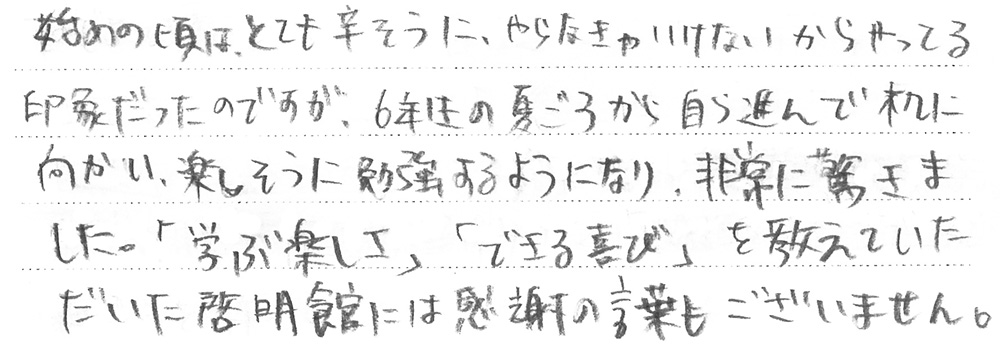 始めの頃は、とても辛そうに、やらなきゃいけないからやってる
印象だったのですが、6年生の夏ごろから自ら進んで机に
向かい、楽しそうに勉強するようになり、非常に驚きま
した。「学ぶ楽しさ」「できる喜び」を教えていた
だいた啓明館には感謝の言葉もございません。